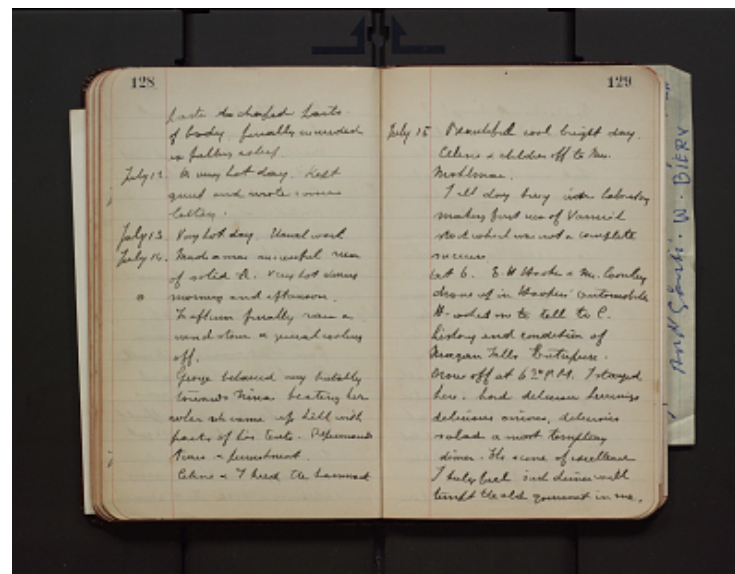 128
paste to chafed parts
of body finally succeeded
in falling asleep.
July 12. A very hot day. Kept
quiet and wrote some
letters.
July 13 Very hot day. Usual work
July 14. Made a successful run
of solid A. Very hot during
morning and afternoon.
In afternoon finally came a
wind storm a general cooling
off.
George behaved very brutally
towards Nina beating her
when she came up hill with
parts of his tents.
Tears & punishment.
Celine & I heard the
129
July 15 Beautiful cool bright day.
Celine & children off to Mrs.
I all day busy in laboratory
making first use of Varnish
which was not a complete
success.
at 6. E. H Hooker & Mr. Cooley
drove up in Hookers' automobile
H. wished me to tell to C.
history and condition of
Niagara Falls Enterprise.
Drove off at 6 P.M. I stayed
here. had delicious
delicious onions, delicious
salad a most tempting
dinner. The acme of excellence
I truly feel such dinner will
tempt the old gourmet in me.
W. BIERY